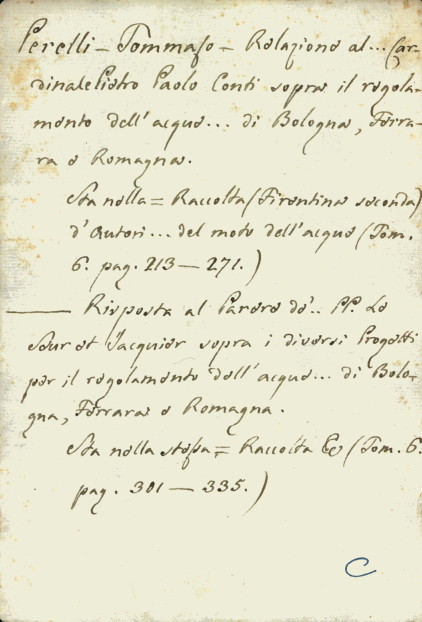 Perelli - Tommaso - Relazione al... Car-
dinale Pietro Paolo Conti sopra il regola-
mento dell'acque... di Bologna, Ferra-
ra e Romagna.
Sta nella = Raccolta (Fiorentina seconda)
d'Autori... del moto dell'acque (Tom.
6. pag. 213 — 271.)
——— Risposta al Parere de'.. PP. Le
Seur et Jacquier sopra i diversi Progetti
per il regolamento dell'acque... di Bolo-
gna, Ferrara e Romagna.
Sta nella stessa = Raccolta &c (Tom. 6.
pag. 301 — 335.)
C